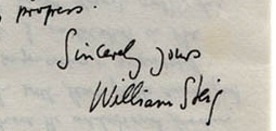 progress.
Sincerely yours
William Steig